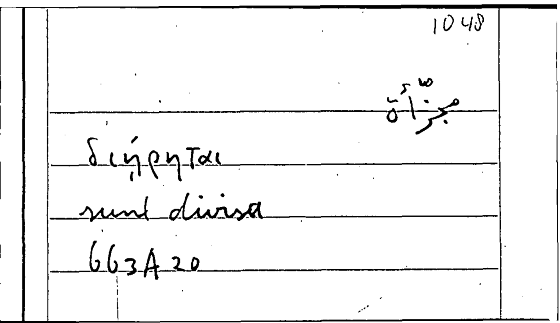 1048
مجزّأة
διῄρηται
sunt divisa
663A20